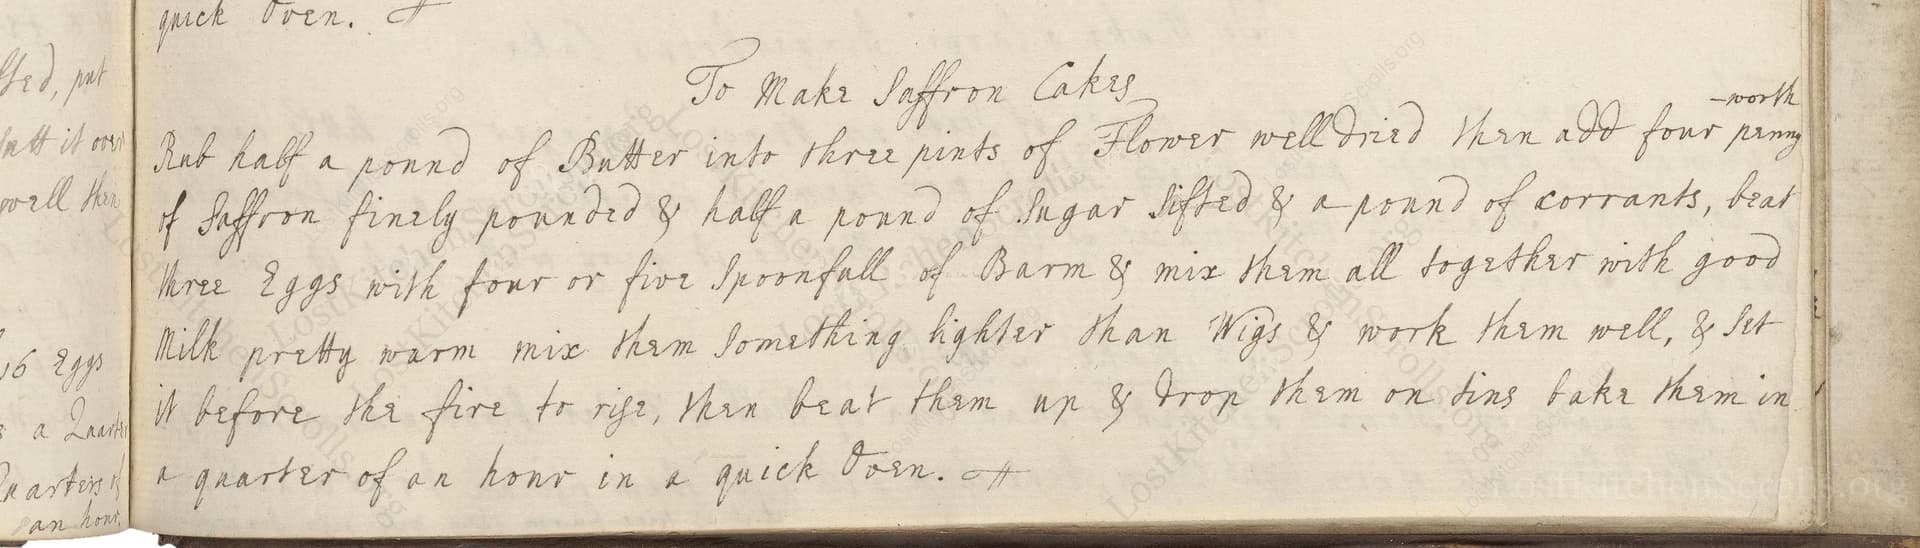 quick Oven.
To Make Saffron Cakes
Rub half a pound of Butter into three pints of Flower well dried then add four penny-worth
of Saffron finely pounded & half a pound of Sugar Sifted & a pound of corrants, beat
three Eggs with four or five Spoonfull of Barm & mix them all together with good
Milk pretty warm mix them Something lighter than Wigs & work them well, & Set
it before the fire to rise, then beat them up & drop them on tins bake them in
a quarter of an hour in a quick Oven.
put
it over
well then
16 Eggs
a Quarter
Quarters of
an hour.
LostKitchenScrolls.org